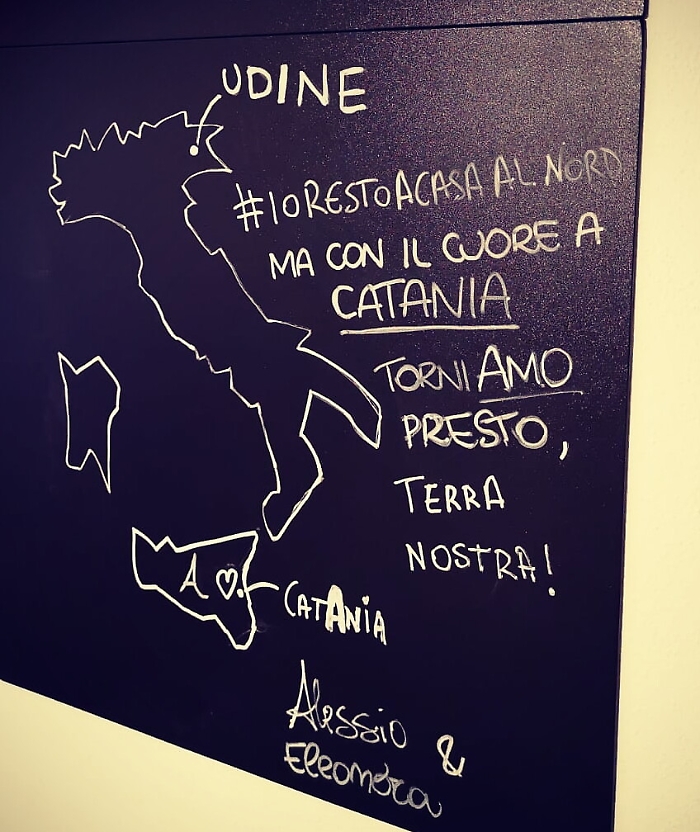 UDINE
#IORESTOACASA AL NORD
MA CON IL CUORE A
CATANIA
TORNIAMO
PRESTO,
TERRA
NOSTRA!
A ♡
CATANiA
Alessio &
Eleonora